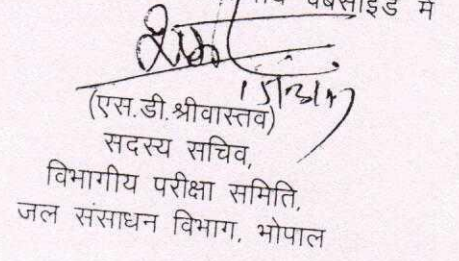 वेबसाइड में
(एस.डी.श्रीवास्तव)
सदस्य सचिव,
विभागीय परीक्षा समिति,
जल संसाधन विभाग, भोपाल